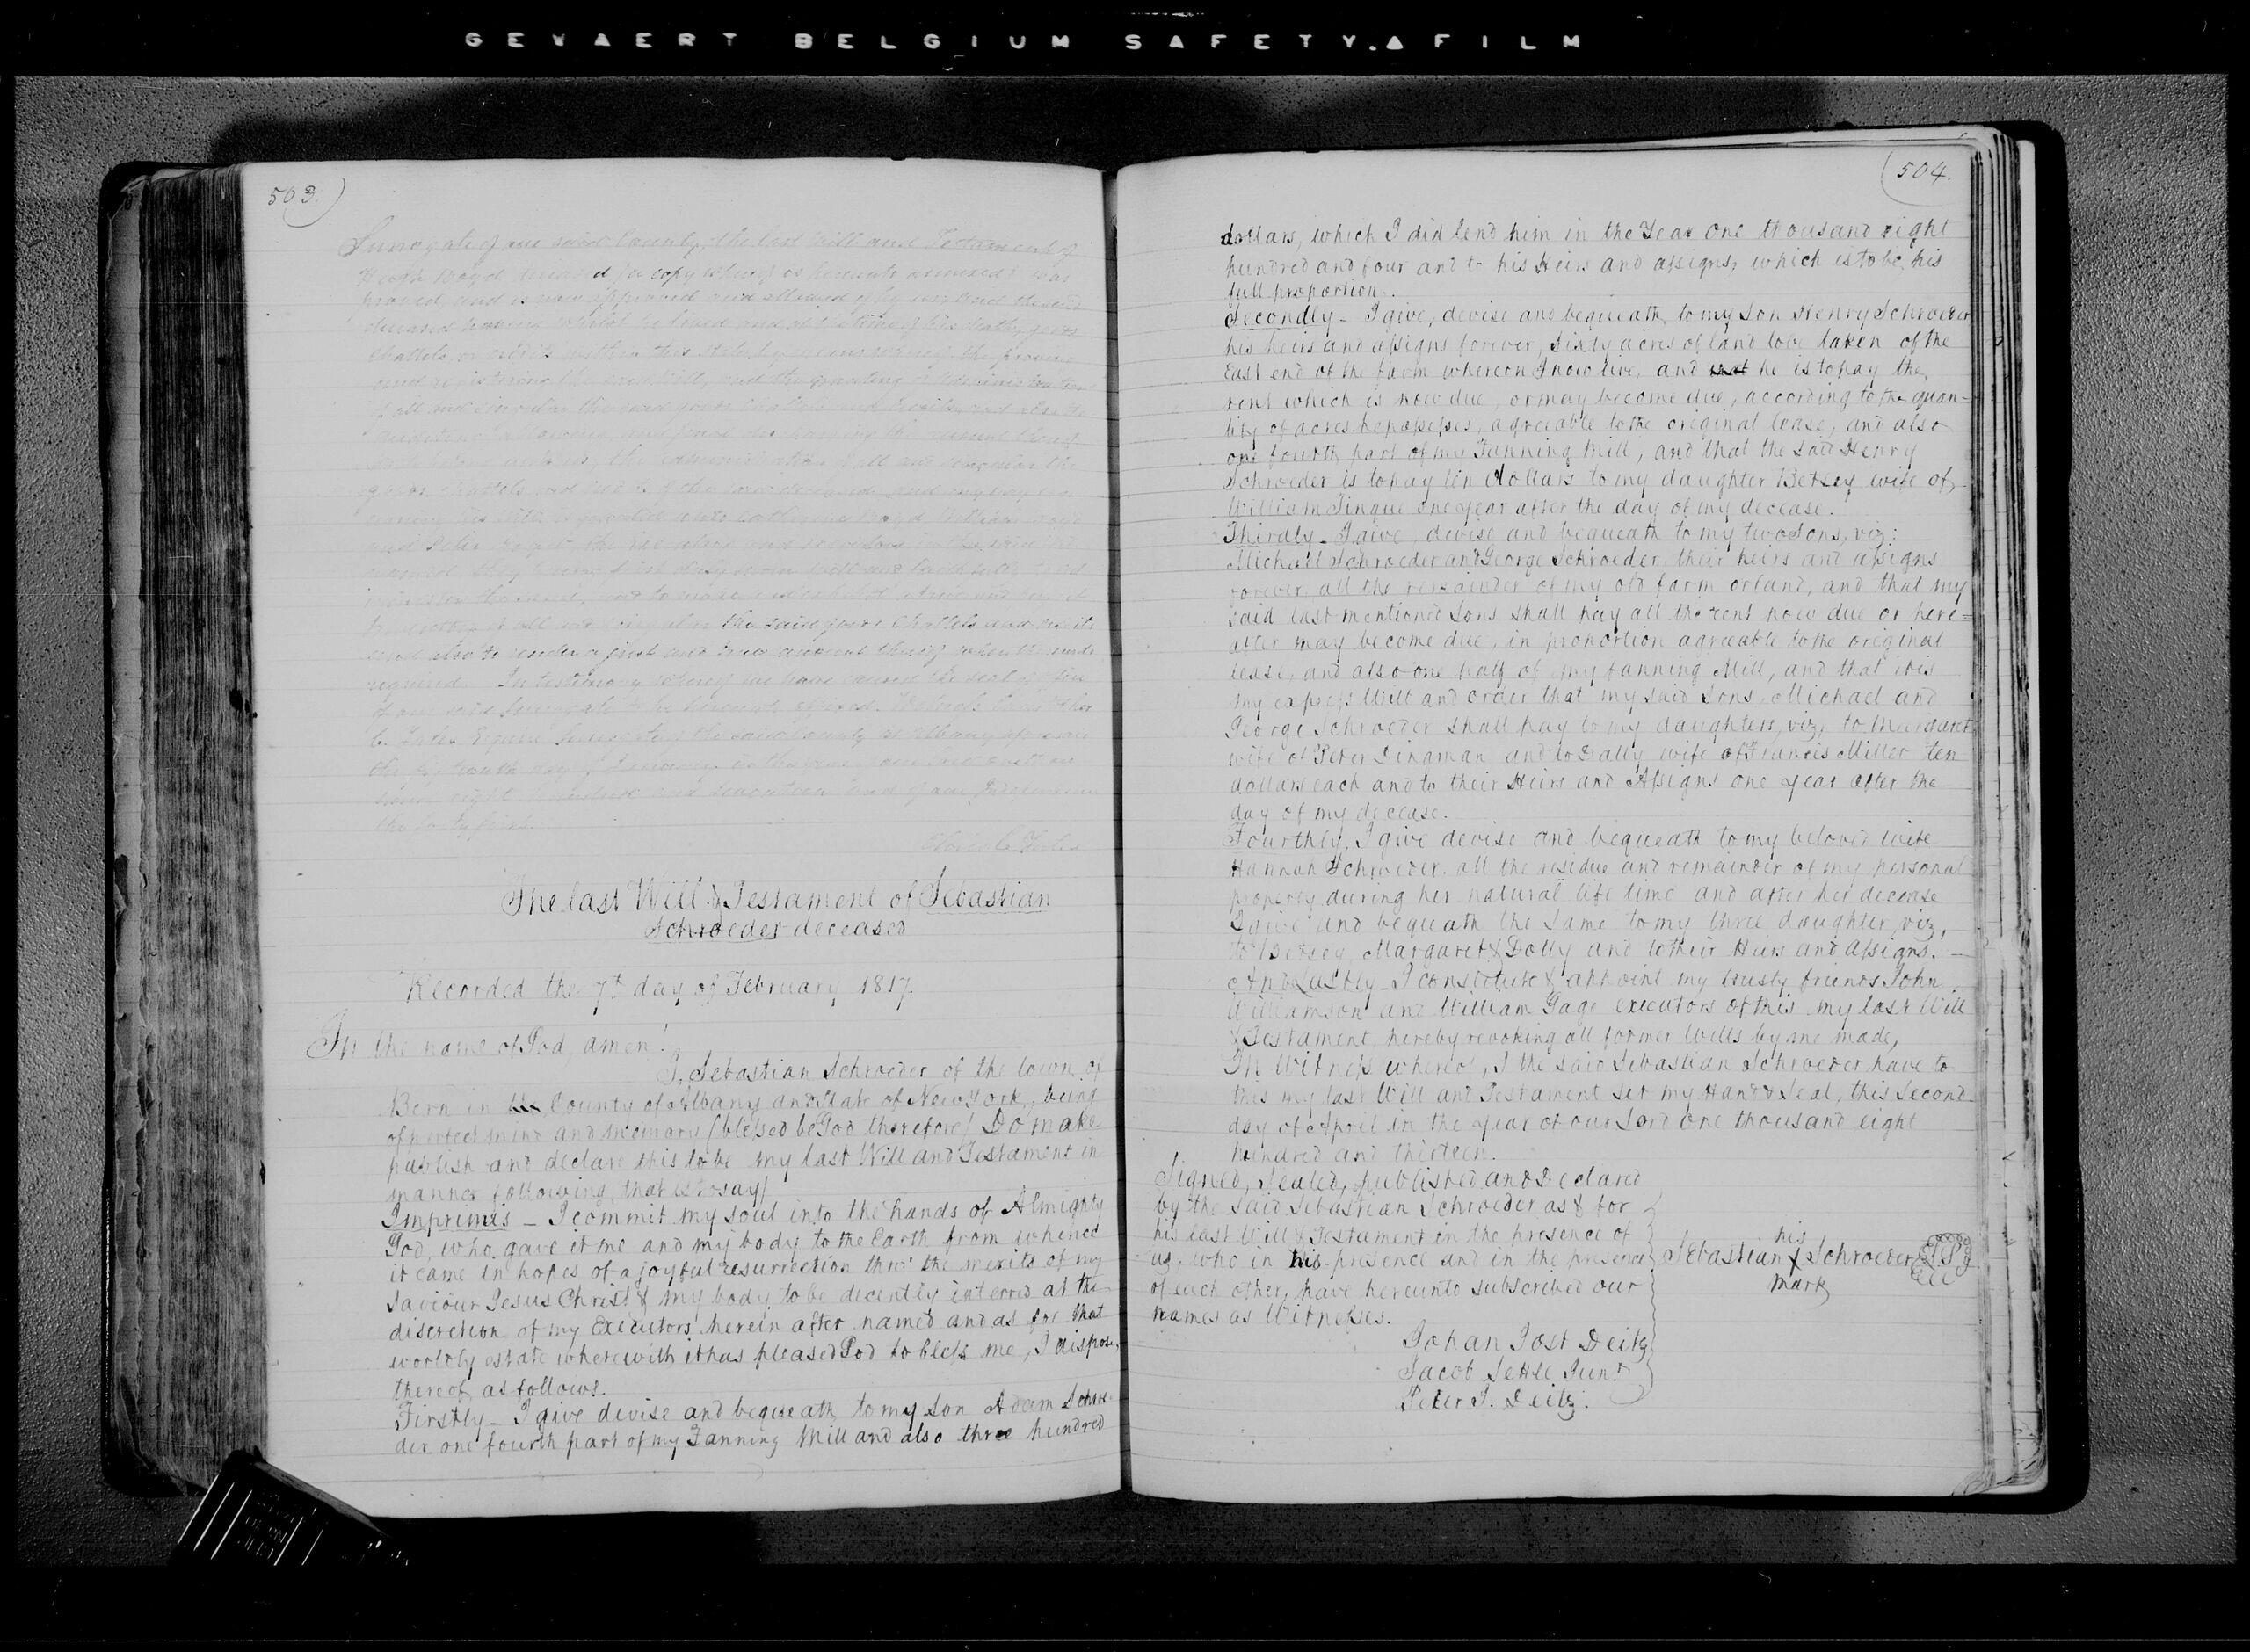 GEVAERT BELGIUM SAFETY FILM
503.
Surrogate of our said County, the last will and Testament of
Hugh Boyd deceased (a copy whereof is hereunto annexed) was
proved, and is now approved and allowed of by us; and the said
deceased having whilst he lived and at the time of his death, goods
chattels or credits within this State, by means whereof the proving
and registering the said Will, and the granting administration
of all and singular the said goods chattels and credits, and also the
the administration of all and singular the
goods, chattels and credits of the said deceased and any way con-
cerning his Will, is granted unto
and Peter
named, they having first duly sworn well and faithfully to ad-
minister the same, and to make and exhibit a true and perfect
Inventory of all and singular the said goods chattels and credits
and also to render a just and true account thereof when thereunto
required. In testimony whereof we have caused the seal of office
of our said Surrogate to be hereunto affixed. Witness
Esquire Surrogate of the said county at Albany
the day of January in the year one thou-
sand eight hundred and seventeen and of our Independence
the forty first.
The last Will & Testament of Sebastian
Schroeder deceased
Recorded the 7th day of February 1817.
In the name of God, amen!
I, Sebastian Schroeder of the town of
Bern in the County of Albany and State of New York, being
of perfect mind and memory (blessed be God therefore) Do make
publish and declare this to be my last Will and Testament in
manner following, that is to say/
Imprimis _ I commit my soul into the hands of Almighty
God, who gave it me and my body to the Earth from whence
it came in hopes of a joyful resurrection thro' the merits of my
Saviour Jesus Christ & my body to be decently interred at the
discretion of my Executors herein after named and as for that
worldly estate wherewith it has pleased God to bless me, I dispose
thereof as follows.
Firstly _ I give devise and bequeath to my Son Adam Schroe-
der one fourth part of my Fanning Mill and also three hundred
504.
dollars, which I did lend him in the Year one thousand eight
hundred and four and to his Heirs and assigns, which is to be his
full proportion.
Secondly _ I give, devise and bequeath to my Son Henry Schroeder
his heirs and assigns forever, Sixty acres of land to be taken of the
East end of the farm whereon I now live, and that he is to pay the
rent which is now due, or may become due, according to the quan-
tity of acres he possesses, agreeable to the original lease, and also
one fourth part of my Fanning Mill, and that the said Henry
Schroeder is to pay ten dollars to my daughter Betsey wife of
William Tinque one year after the day of my decease.
Thirdly _ I give, devise and bequeath to my two Sons, viz:
Michael Schroeder and George Schroeder, their heirs and assigns
forever, all the remainder of my old farm or land, and that my
said last mentioned Sons shall pay all the rent now due or here=
after may become due, in proportion agreeable to the original
lease, and also one half of my fanning Mill, and that it is
my express Will and order that my said Sons, Michael and
George Schroeder shall pay to my daughters, viz, to Margaret
wife of Peter Dingman and to Dally wife of Francis Miller ten
dollars each and to their Heirs and Assigns one year after the
day of my decease.
Fourthly, I give devise and bequeath to my beloved wife
Hannah Schroeder, all the residue and remainder of my personal
property during her natural life time and after her decease
I give and bequeath the same to my three daughter, viz,
to Betsey, Margaret & Dolly and to their Heirs and assigns. _
And Lastly _ I constitute & appoint my trusty friends John
Williamson and William Gage executors of this my last Will
& Testament, hereby revoking all former Wills by me made,
In Witness whereof, I the said Sebastian Schroeder have to
this my last Will and Testament set my Hand & Seal, this Second
day of April in the year of our Lord one thousand eight
hundred and thirteen.
Signed, Sealed, published and Declared
by the Said Sebastian Schroeder as & for
his last Will & Testament in the presence of
us, who in his presence and in the presence
of each other, have hereunto subscribed our
names as Witnesses.
his
Sebastian X Schroeder LS
mark
Johan Jost Deitz
Jacob Settle Junr
Peter J. Deitz.